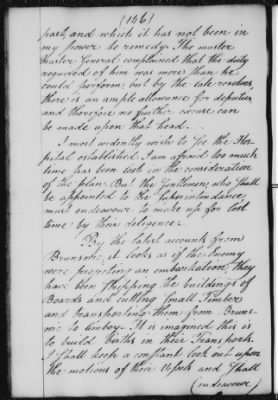 (146)
past, and which it has not been in
my power to remedy. The muster
master General complained that the duty
required of him was more than he
could perform; but by the late resolves,
there is an ample allowance for deputies
and therefore no further excuse can
be made upon that head.
I most ardently wish to see the Hos-
pital established. I am afraid too much
time has been lost in the consideration
of the plan. But the Gentlemen, who shall
be appointed to the Superintendance,
must endeavour to make up for lost
time by their deligence.
By the latest accounts from
Brunswic, it looks as if the Enemy
were projecting an embarkation, they
have been stripping the buildings of
Boards and cutting small Timber
and transporting them from Bruns-
wic to Amboy. It is imagined this is
to build births in their Transports.
I shall keep a constant look out upon
the motions of their Vessels and shall
(endeavour)